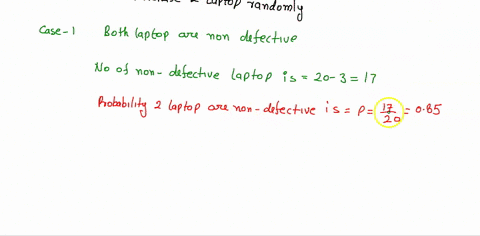 2 laptop randomly
Case-1 Both laptop are non defective
No of non-defective laptop is = 20-3 = 17
Probability 2 laptop are non-defective is = P = 17/20 = 0.85